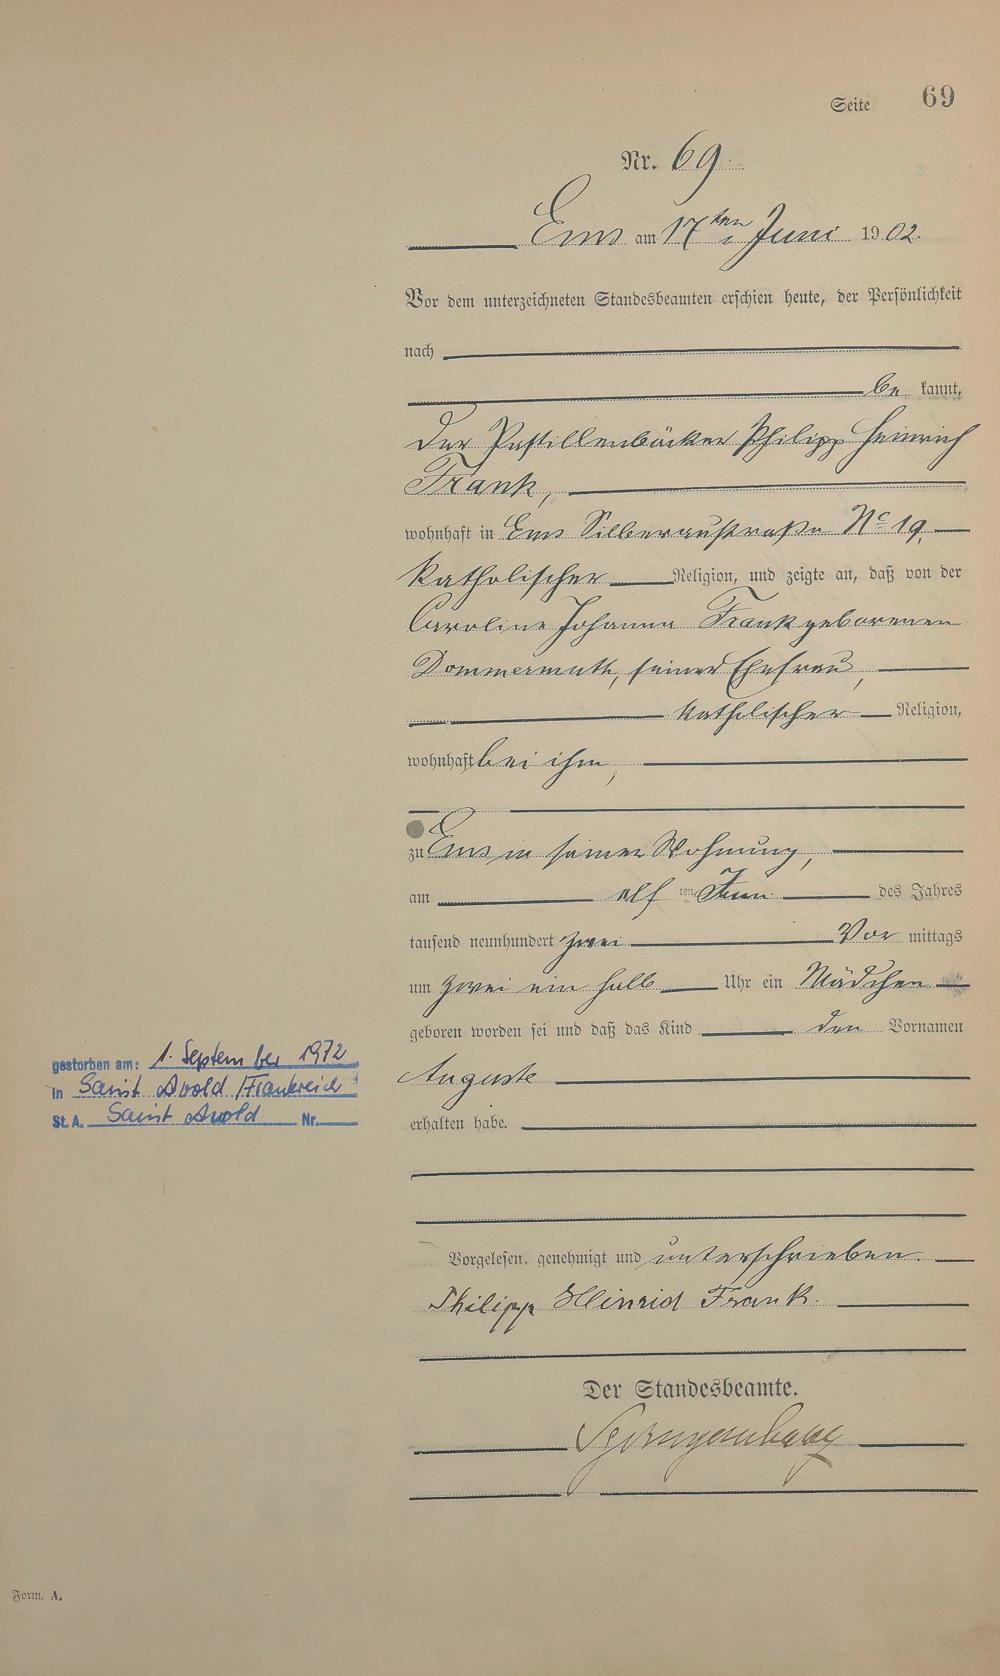 Seite 69
Nr. 69
Ems am 17ten Juni 1902.
Vor dem unterzeichneten Standesbeamten erschien heute, der Persönlichkeit
nach
be kannt,
der Pastillenbäcker Philipp Heinrich
Frank,
wohnhaft in Ems Silberaustraße No 19,
katholischer Religion, und zeigte an, daß von der
Caroline Johanna Frank geborenen
Dommermuth, seiner Ehefrau,
katholischer Religion,
wohnhaft bei ihm,
zu Ems in seiner Wohnung,
am elf ten Juni des Jahres
tausend neunhundert zwei Vor mittags
um zwei ein halb Uhr ein Mädchen
geboren worden sei und daß das Kind den Vornamen
Auguste
erhalten habe.
gestorben am: 1. September 1972
in Saint Avold / Frankreich
St. A. Saint Avold Nr.
Vorgelesen, genehmigt und unterschrieben.
Philipp Heinrich Frank.
Der Standesbeamte.
Form. A.